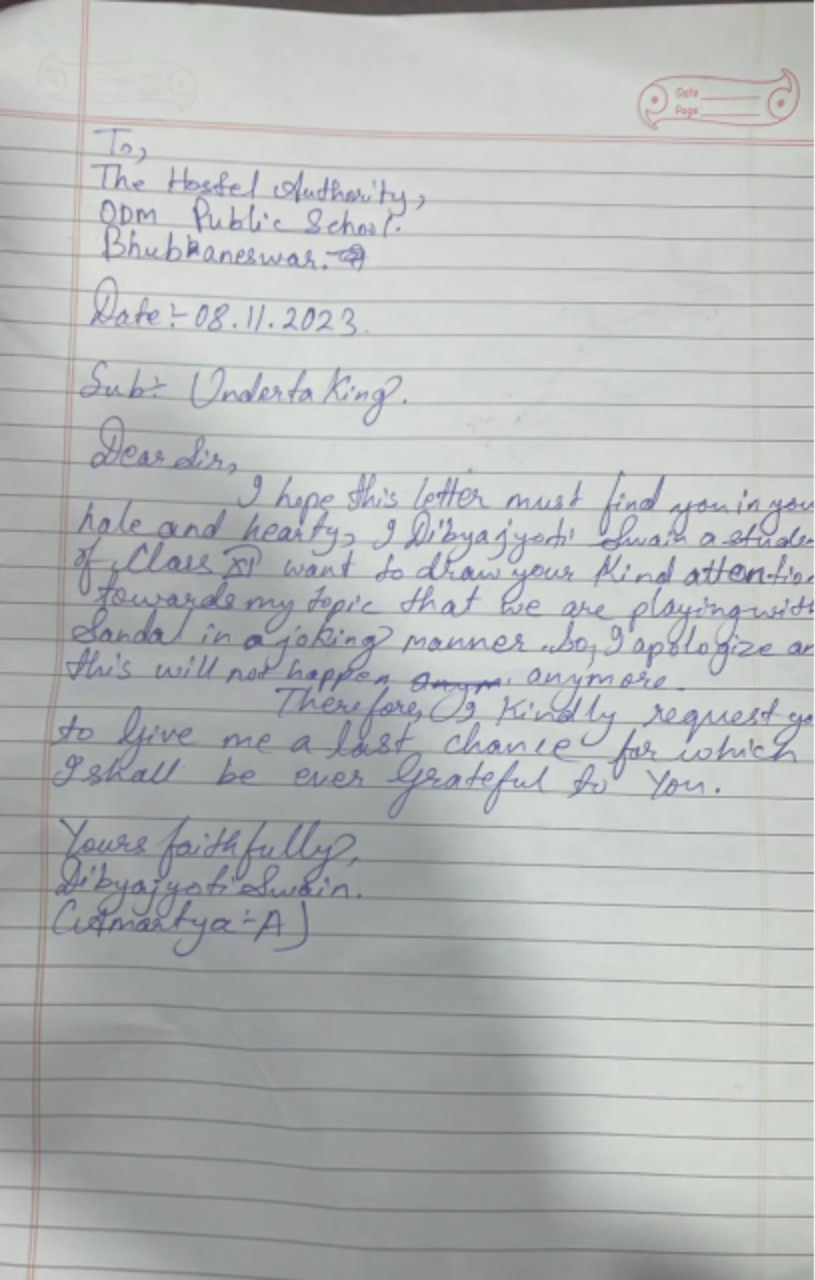 Date
Page
To,
The Hostel Authority,
ODM Public School.
Bhubhaneswar.
Date:- 08.11.2023.
Sub:- Undertaking.
Dear Sir,
I hope this letter must find you in you
hale and hearty, I Dibyajyoti Swain a stude
of Class XI want to draw your kind attentio
towards my topic that we are playing with
Sandal in a joking manner. So, I apologize an
this will not happen anym. anymore.
Therefore, I Kindly request yo
to Give me a last chance for which
I shall be ever Grateful to You.
Yours faithfully,
Dibyajyoti Swain.
(Amartya:-A)